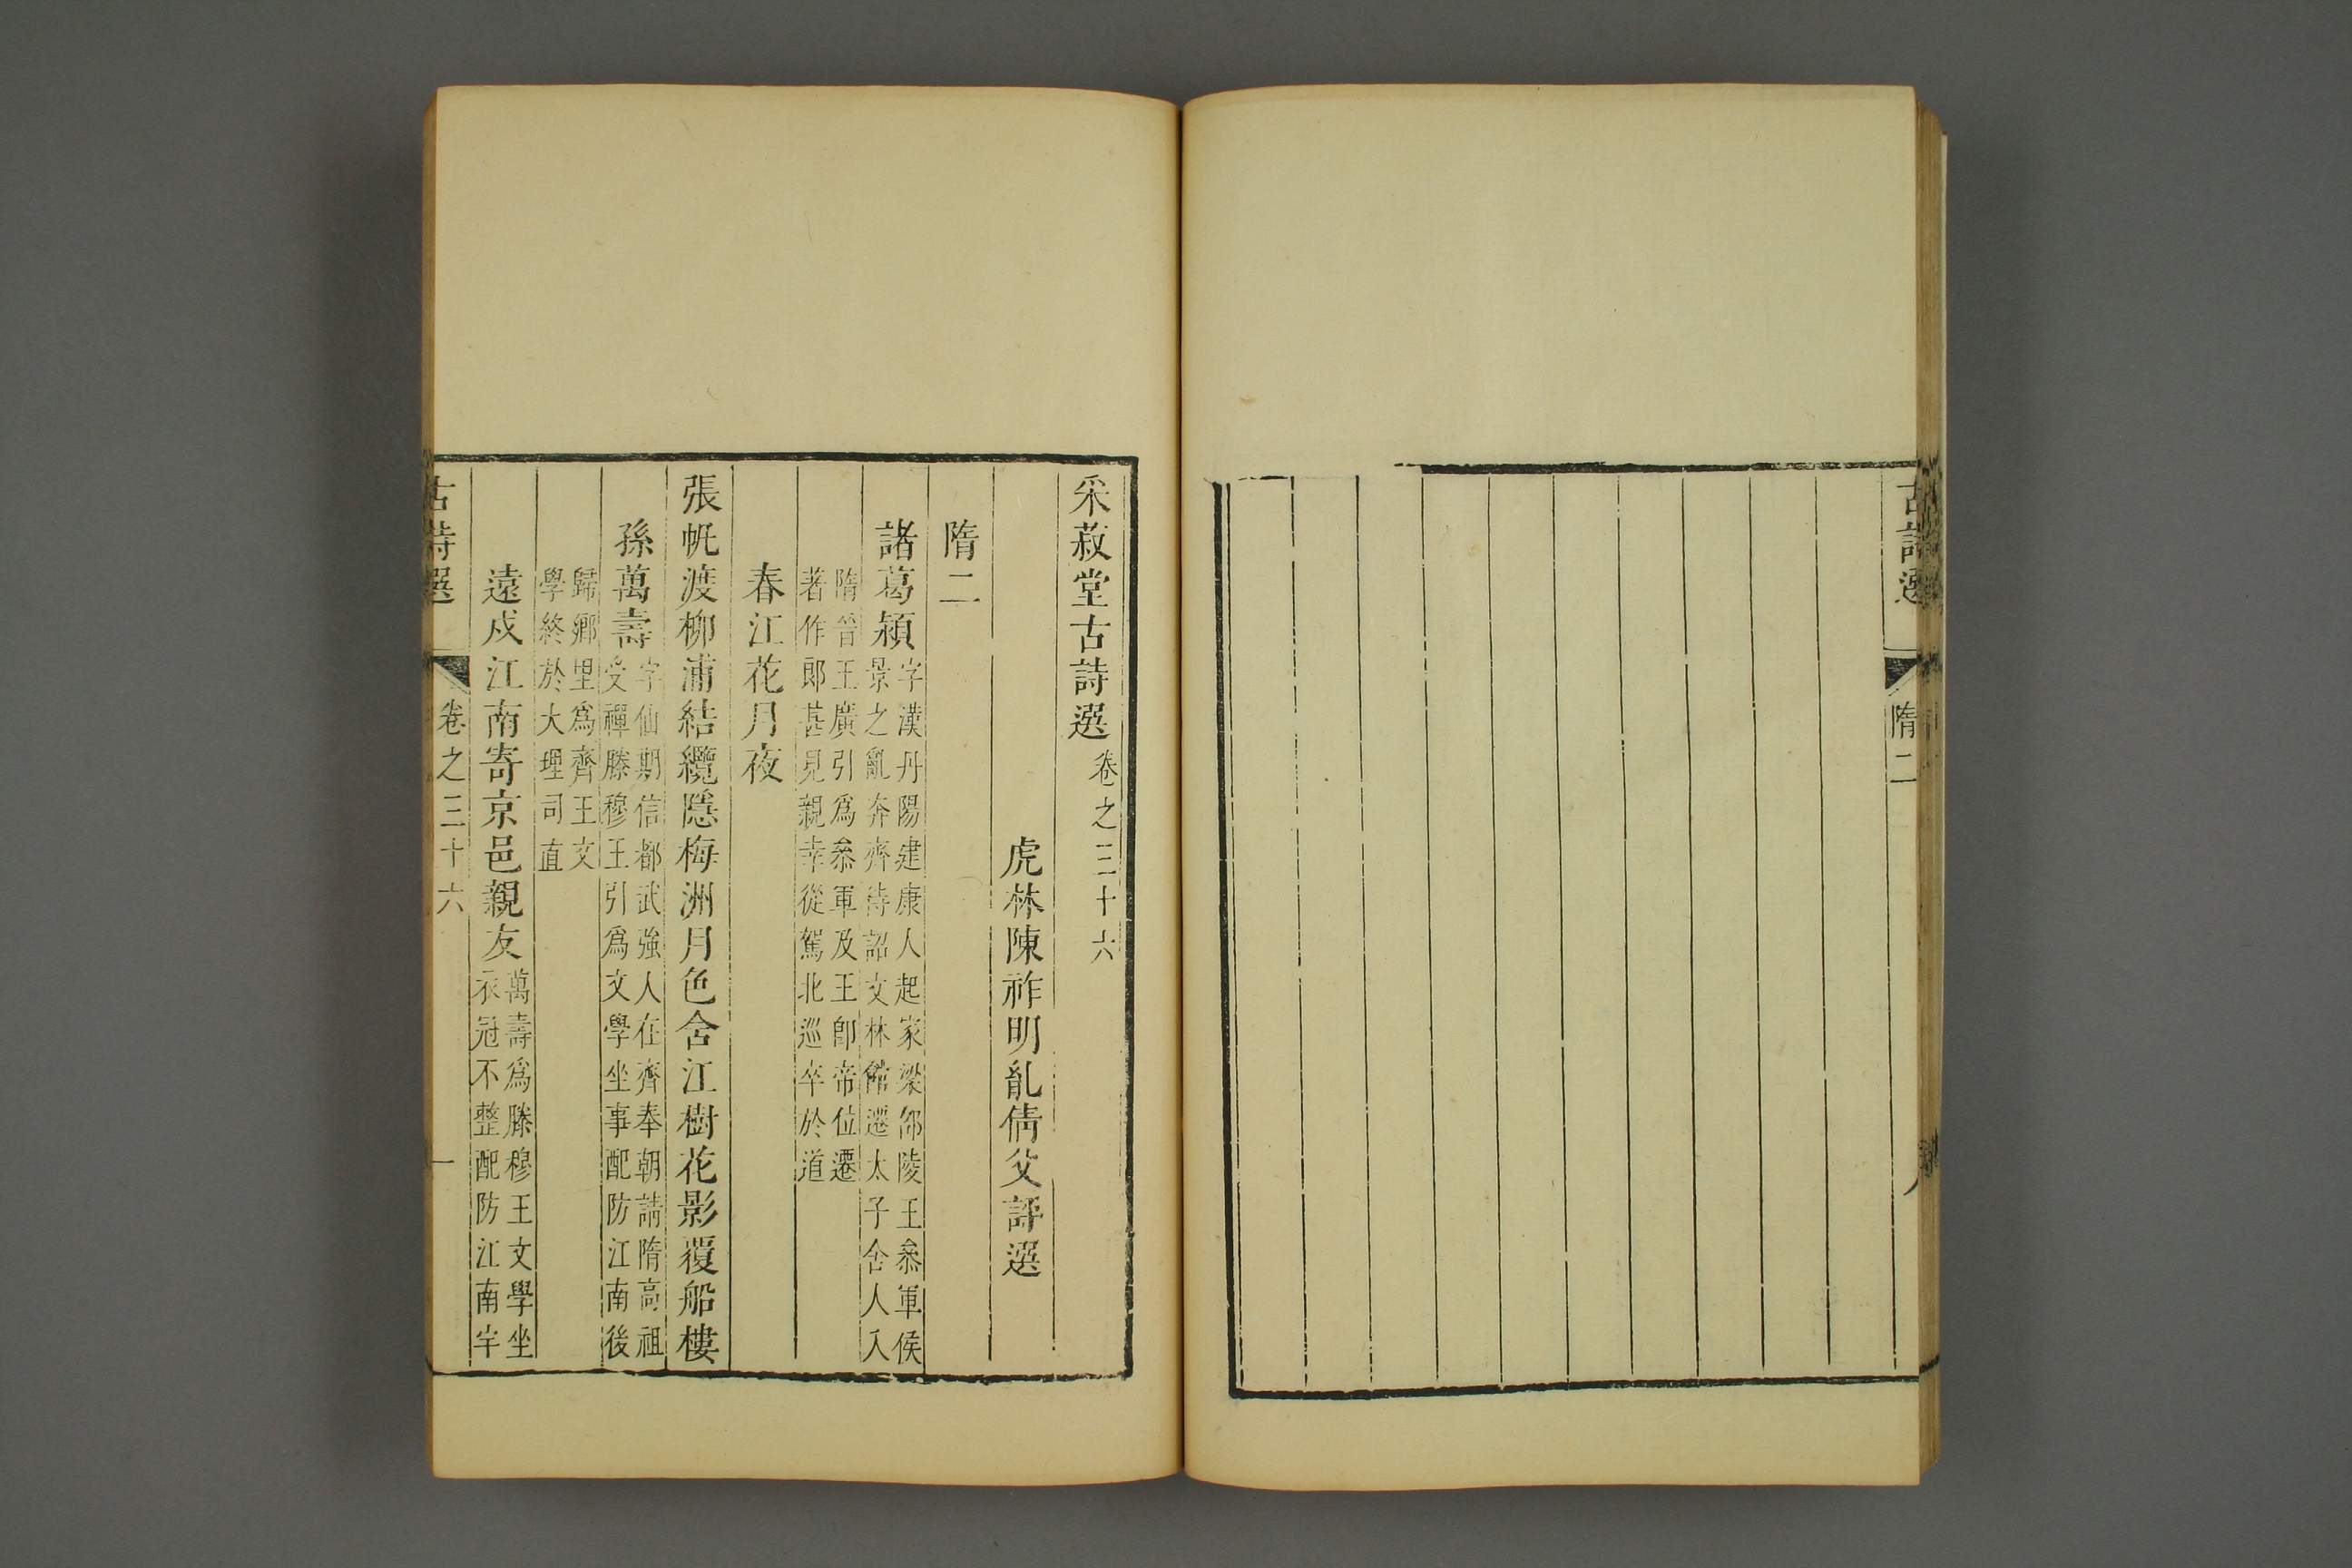 古詩選
隋二
采菽堂古詩選卷之三十六
虎林陳祚明胤倩父評選
隋二
諸葛潁字漢丹陽建康人起家梁邵陵王叅軍侯
景之亂奔齊待詔文林館遷太子舍人入
隋晉王廣引爲叅軍及王卽帝位遷
著作郞甚見親幸從駕北巡卒於道
春江花月夜
張帆渡柳浦結纜隱梅洲月色含江樹花影覆船樓
孫萬壽字仙期信都武強人在齊奉朝請隋高祖
受禪滕穆王引爲文學坐事配防江南後
歸鄉里爲齊王文
學終於大理司直
遠戍江南寄京邑親友萬壽爲滕穆王文學坐
衣冠不整配防江南宇
古詩選
卷之三十六
一